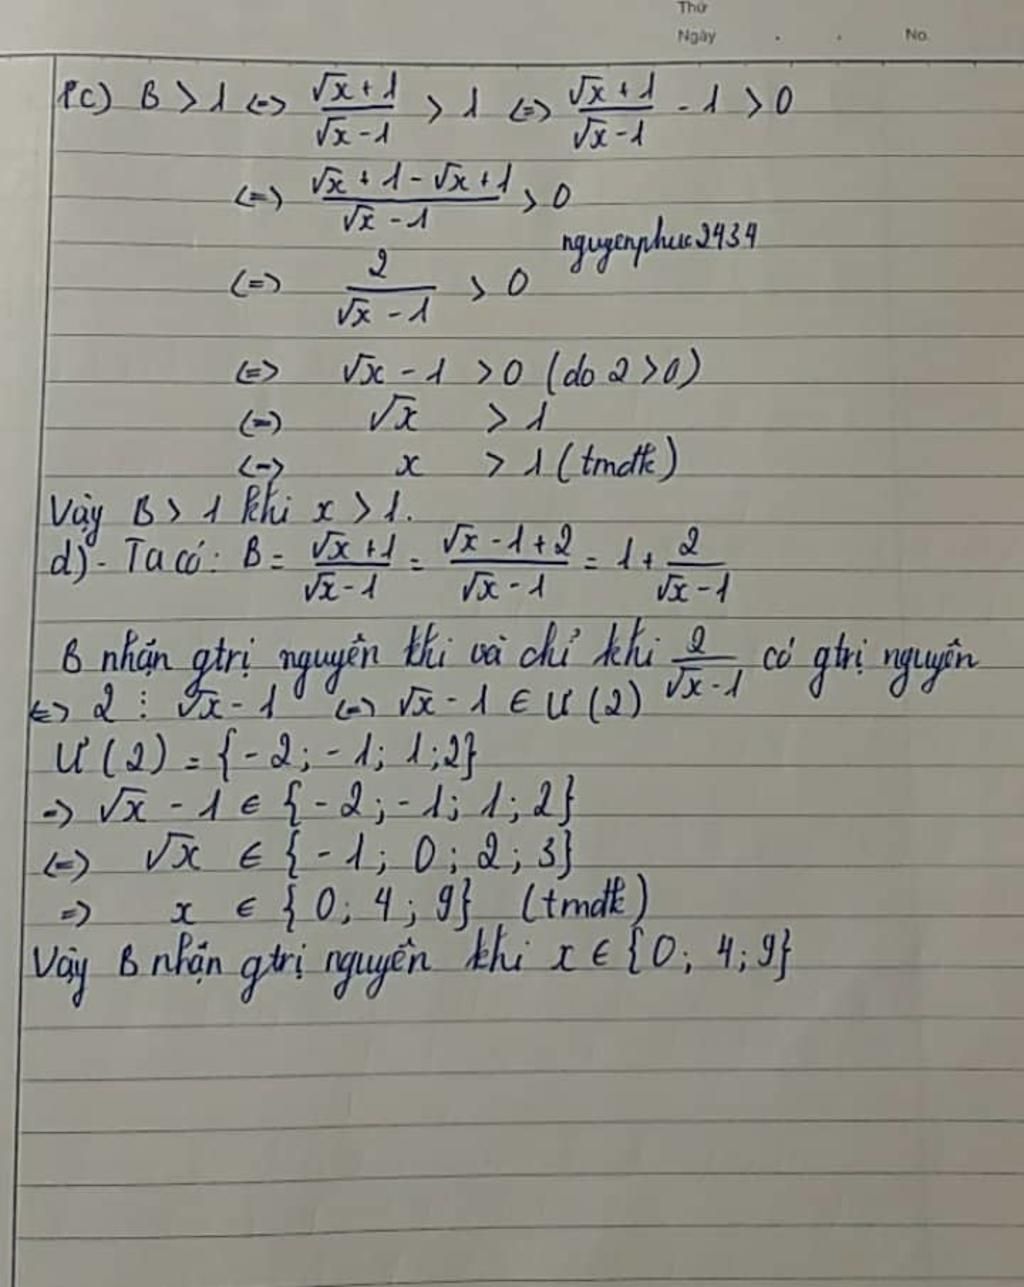 Thứ
Ngày . . No.
1c) B > 1 <=> (√x + 1)/(√x - 1) > 1 <=> (√x + 1)/(√x - 1) - 1 > 0
<=> (√x + 1 - √x + 1)/(√x - 1) > 0
nguyenphuc2434
<=> 2/(√x - 1) > 0
<=> √x - 1 > 0 (do 2 > 0)
<=> √x > 1
<=> x > 1 (tmđk)
Vậy B > 1 khi x > 1.
d) - Ta có: B = (√x + 1)/(√x - 1) = (√x - 1 + 2)/(√x - 1) = 1 + 2/(√x - 1)
B nhận gtrị nguyên khi và chỉ khi 2/(√x - 1) có gtrị nguyên
<=> 2 ⋮ √x - 1 <=> √x - 1 ∈ Ư(2)
Ư(2) = {-2; -1; 1; 2}
=> √x - 1 ∈ {-2; -1; 1; 2}
<=> √x ∈ {-1; 0; 2; 3}
=> x ∈ {0; 4; 9} (tmđk)
Vậy B nhận gtrị nguyên khi x ∈ {0; 4; 9}